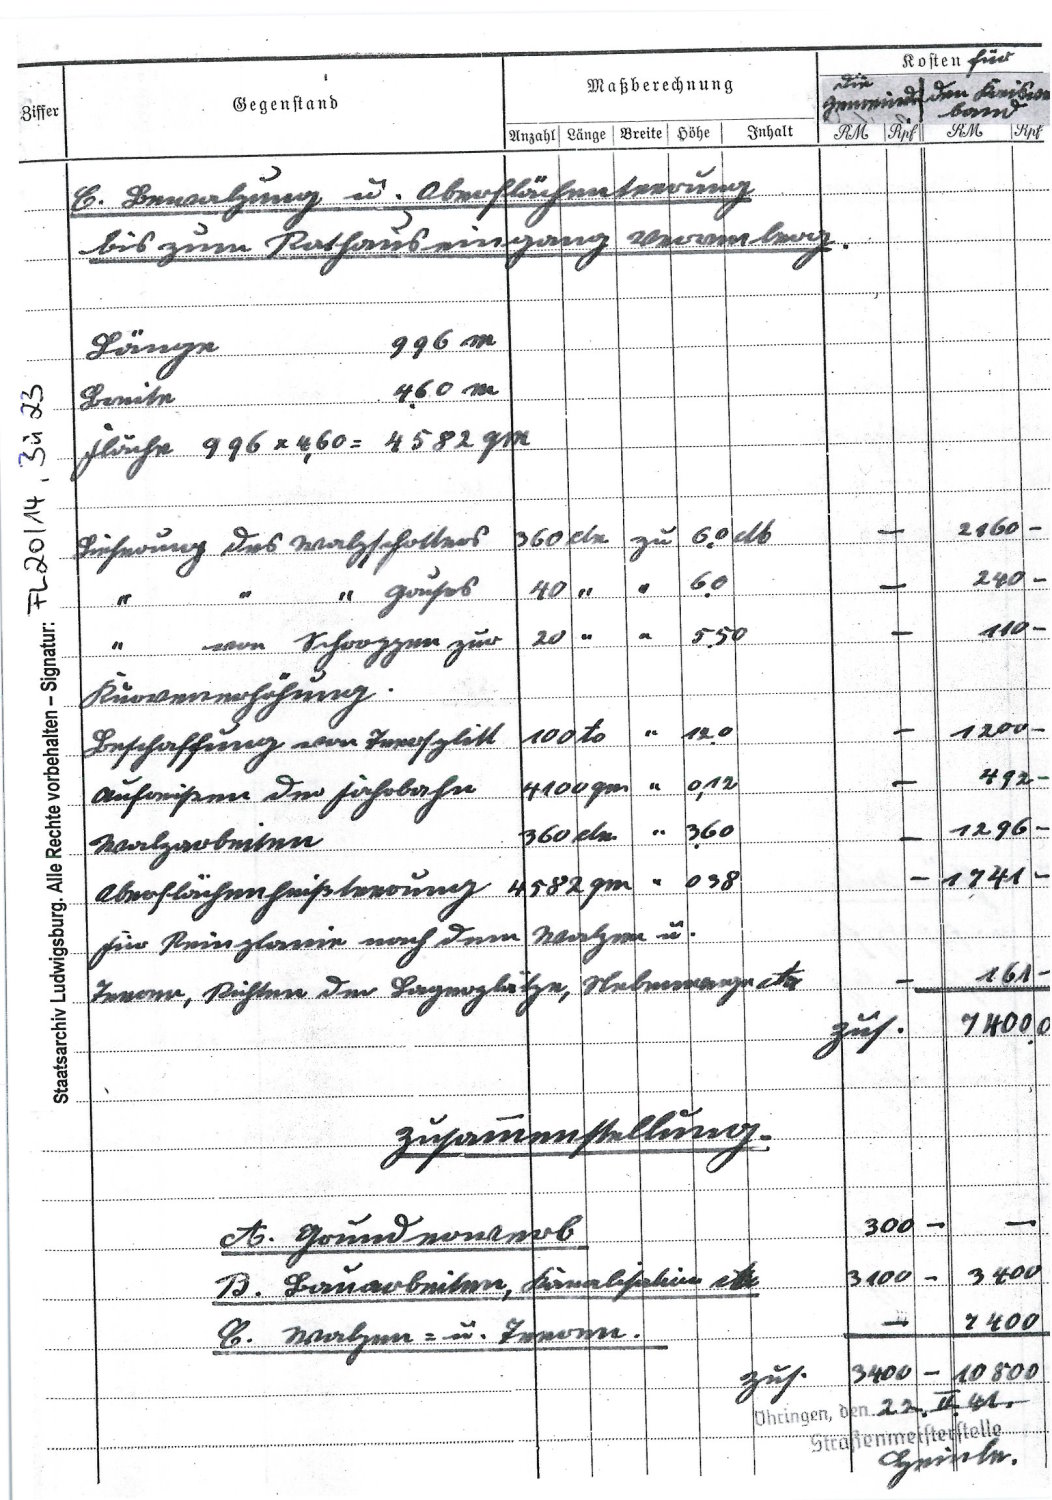 Ziffer Gegenstand Maßberechnung Kosten für
die Gemeinde den Kreisverband
Anzahl Länge Breite Höhe Inhalt RM Rpf RM Rpf
C. Bewalzung u. Oberflächenteerung
bis zum Rathauseingang Verrenberg.
Länge 996 m
Breite 4,60 m
Fläche 996 x 4,60 = 4582 qm
Lieferung des Walzschotters 360 cbm zu 6,0 cbm – 2160 –
" " " Grußes 40 " " 6,0 – 240 –
" von Schroppen zur 20 " " 5,50 – 110 –
Kurvenerhöhung.
Beschaffung von Teersplitt 100 to " 12,0 – 1200 –
Aufreißen der Fahrbahn 4100 qm " 0,12 – 492 –
Walzarbeiten 360 cbm " 3,60 – 1296 –
Oberflächenheißteerung 4582 qm " 0,38 – 1741 –
Für Reinplanie nach dem Walzen u.
Teeren, Richten der Lagerplätze, Nebenwege etc – 161 –
zus. 7400,0
Zusammenstellung.
A. Grunderwerb 300 – –
B. Bauarbeiten, Kanalisation etc 3100 – 3400
C. Walzen = u. Teeren. – 7400
zus. 3400 – 10800
Öhringen, den 22. II. 41.
Straßenmeisterstelle
Staatsarchiv Ludwigsburg. Alle Rechte vorbehalten – Signatur: FL 20/14, Bü 23